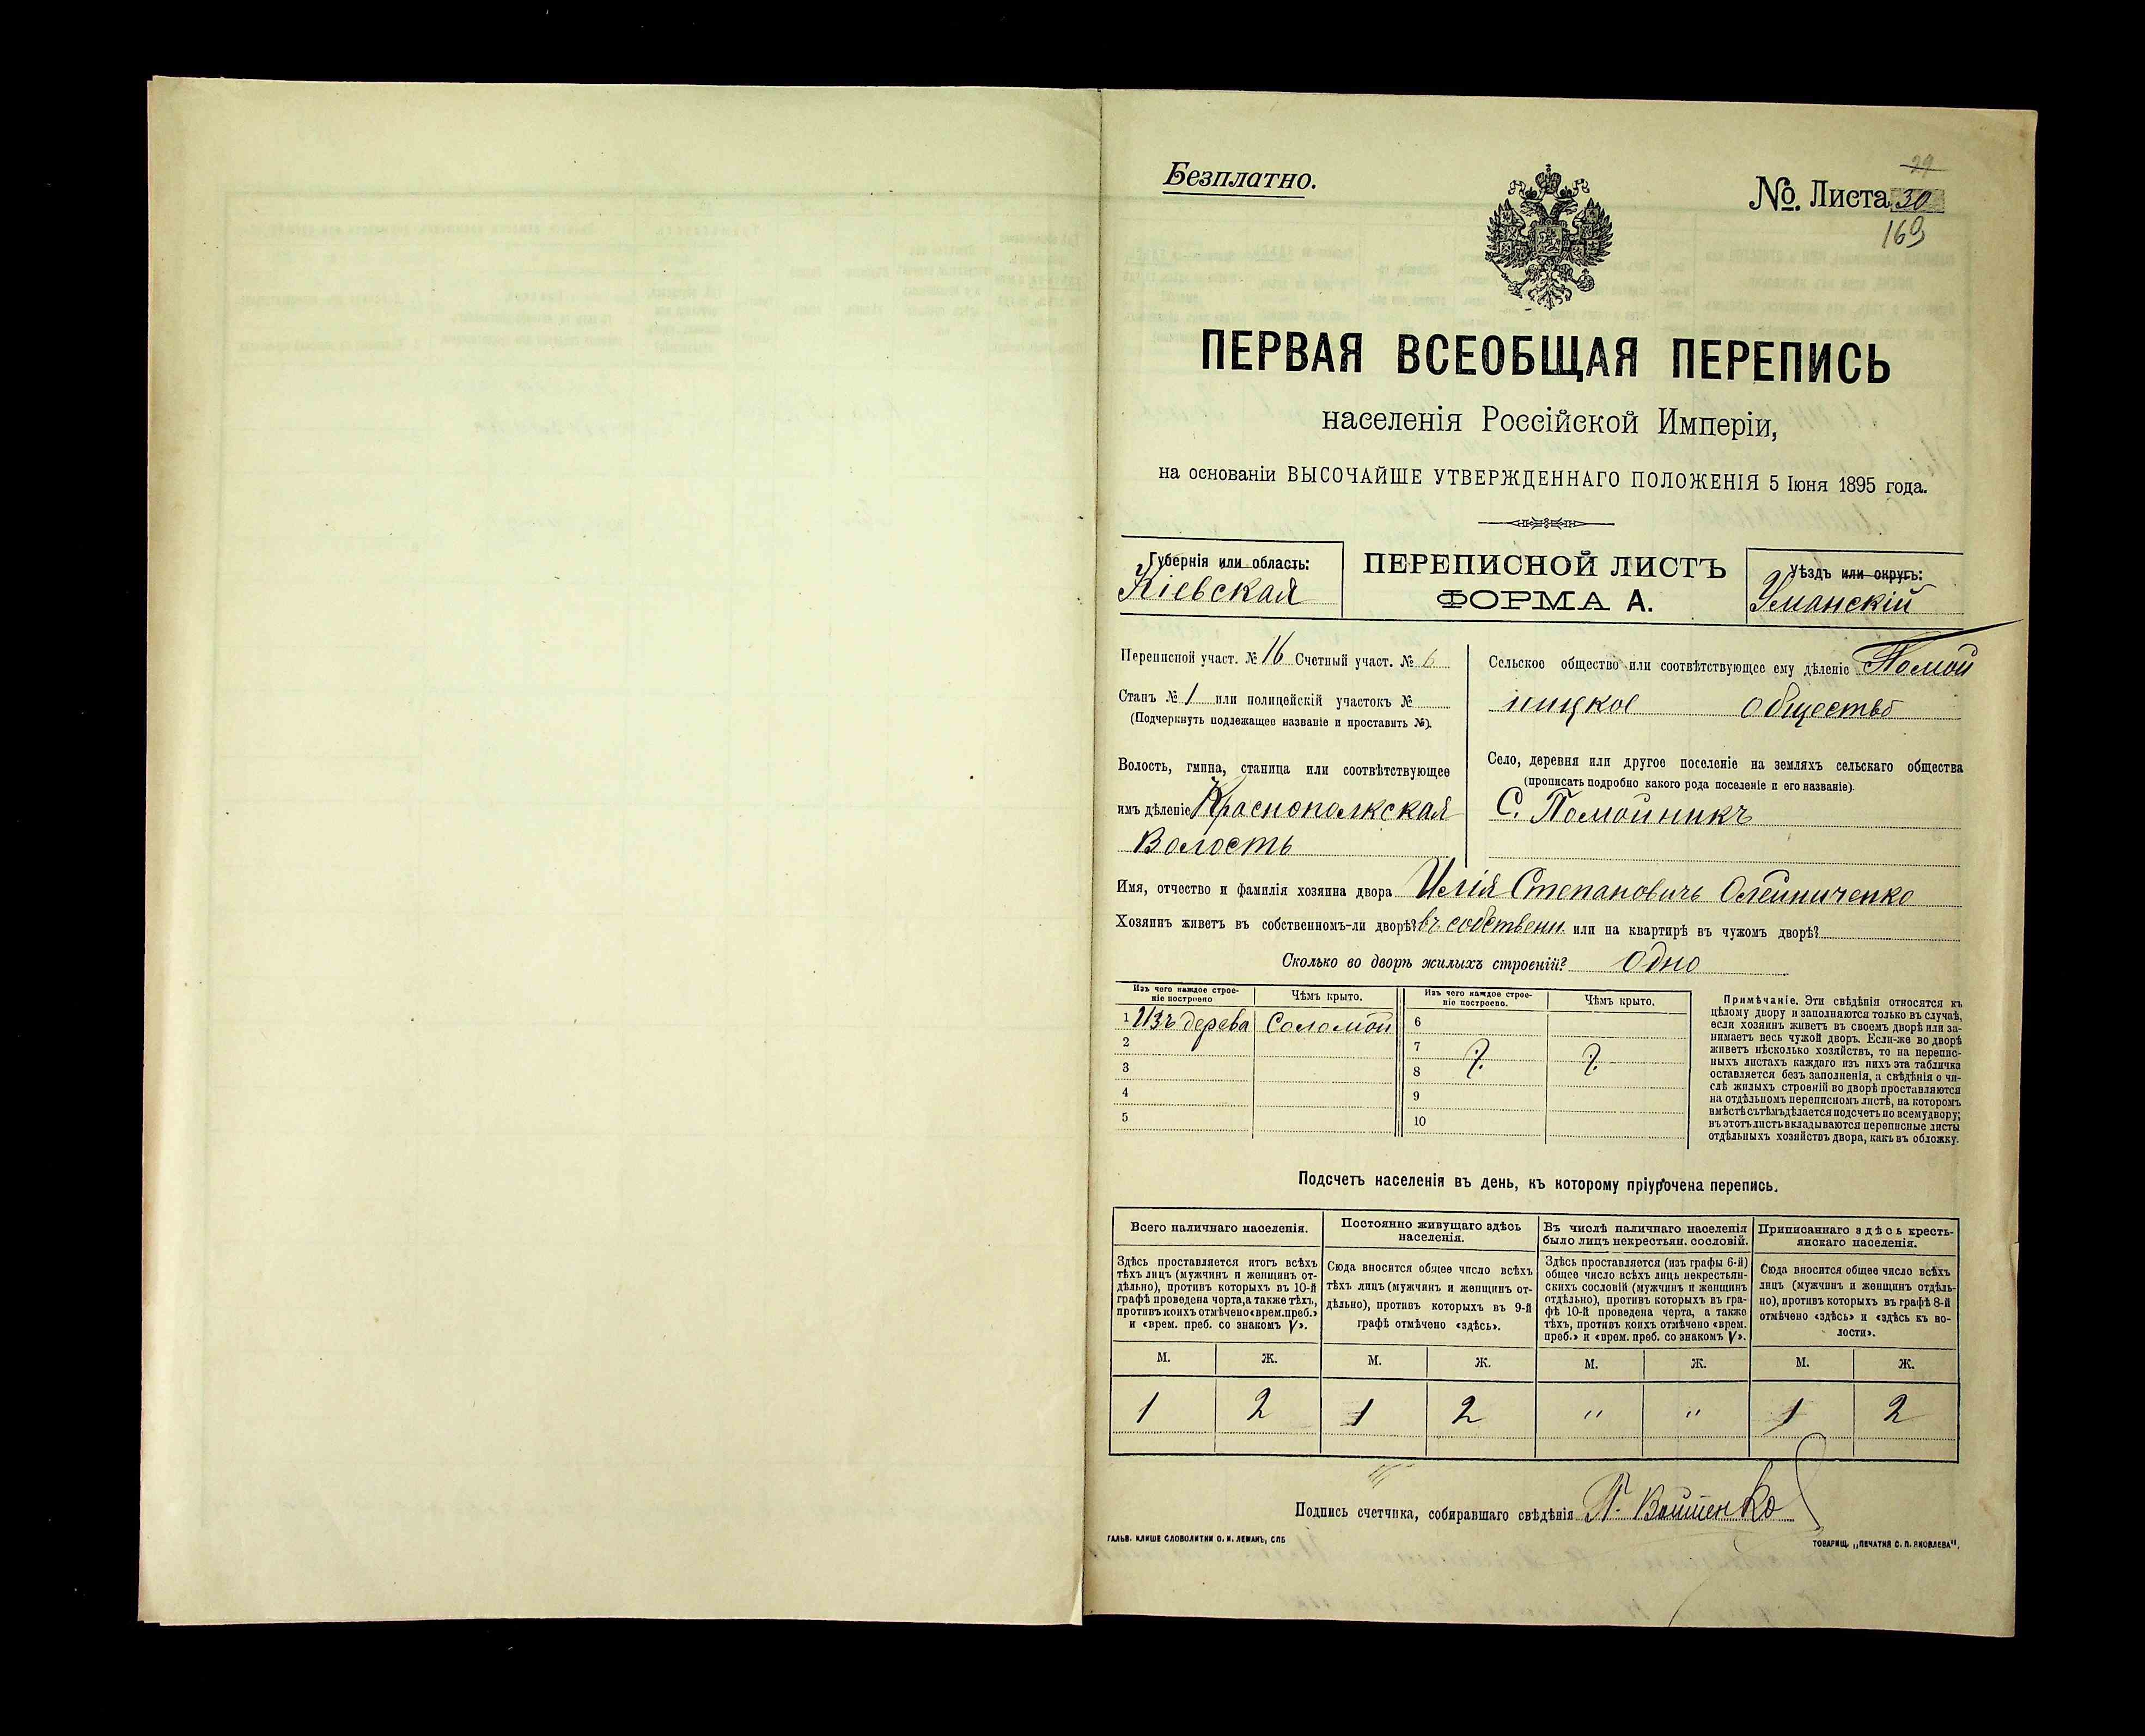 Безплатно.
29
№. Листа 30
169
ПЕРВАЯ ВСЕОБЩАЯ ПЕРЕПИСЬ
населенія Россійской Имперіи,
на основаніи ВЫСОЧАЙШЕ УТВЕРЖДЕННАГО ПОЛОЖЕНІЯ 5 Іюня 1895 года.
Губернія или область:
Кіевская
ПЕРЕПИСНОЙ ЛИСТЪ
ФОРМА А.
Уѣздъ или округъ:
Уманскій
Переписной участ. № 16 Счетный участ. № 6
Станъ № 1 или полицейскій участокъ №
(Подчеркнуть подлежащее названіе и проставить №).
Волость, гмина, станица или соотвѣтствующее
имъ дѣленіе Краснополкская
Волость
Сельское общество или соотвѣтствующее ему дѣленіе Помой
ницкое общество
Село, деревня или другое поселеніе на земляхъ сельскаго общества
(прописать подробно какого рода поселеніе и его названіе).
С. Помойникъ
Имя, отчество и фамилія хозяина двора Илія Степановичъ Олейниченко
Хозяинъ живетъ въ собственномъ-ли дворѣ? въ собствени. или на квартирѣ въ чужомъ дворѣ?
Сколько во дворѣ жилыхъ строеній? Одно
Изъ чего каждое строе-
ніе построено
Чѣмъ крыто.
Изъ чего каждое строе-
ніе построено.
Чѣмъ крыто.
1 Изъ дерева Соломой
2
3
4
5
6
7
8
9
10
Примѣчаніе. Эти свѣдѣнія относятся къ
цѣлому двору и заполняются только въ случаѣ,
если хозяинъ живетъ въ своемъ дворѣ или за-
нимаетъ весь чужой дворъ. Если-же во дворѣ
живетъ нѣсколько хозяйствъ, то на перепис-
ныхъ листахъ каждаго изъ нихъ эта табличка
оставляется безъ заполненія, а свѣдѣнія о чи-
слѣ жилыхъ строеній во дворѣ проставляются
на отдѣльномъ переписномъ листѣ, на которомъ
вмѣстѣ съ тѣмъ дѣлается подсчетъ по всему двору;
въ этотъ листъ вкладываются переписные листы
отдѣльныхъ хозяйствъ двора, какъ въ обложку.
Подсчетъ населенія въ день, къ которому пріурочена перепись.
Всего наличнаго населенія.
Здѣсь проставляется итогъ всѣхъ
тѣхъ лицъ (мужчинъ и женщинъ от-
дѣльно), противъ которыхъ въ 10-й
графѣ проведена черта, а также тѣхъ,
противъ коихъ отмѣчено «врем. преб.»
и «врем. преб. со знакомъ V».
Постоянно живущаго здѣсь
населенія.
Сюда вносится общее число всѣхъ
тѣхъ лицъ (мужчинъ и женщинъ от-
дѣльно), противъ которыхъ въ 9-й
графѣ отмѣчено «здѣсь».
Въ числѣ наличнаго населенія
было лицъ некрестьян. сословій.
Здѣсь проставляется (изъ графы 6-й)
общее число всѣхъ лицъ некрестьян-
скихъ сословій (мужчинъ и женщинъ
отдѣльно), противъ которыхъ въ гра-
фѣ 10-й проведена черта, а также
тѣхъ, противъ коихъ отмѣчено «врем.
преб.» и «врем. преб. со знакомъ V».
Приписаннаго здѣсь кресть-
янскаго населенія.
Сюда вносится общее число всѣхъ
лицъ (мужчинъ и женщинъ отдѣль-
но), противъ которыхъ въ графѣ 8-й
отмѣчено «здѣсь» и «здѣсь къ во-
лости».
М. Ж. М. Ж. М. Ж. М. Ж.
1 2 1 2 " " 1 2
Подпись счетчика, собиравшаго свѣдѣнія
ГАЛЬВ. КЛИШЕ СЛОВОЛИТНИ О. И. ЛЕМАНЪ, СПБ
ТОВАРИЩ. „ПЕЧАТНЯ С. П. ЯКОВЛЕВА".